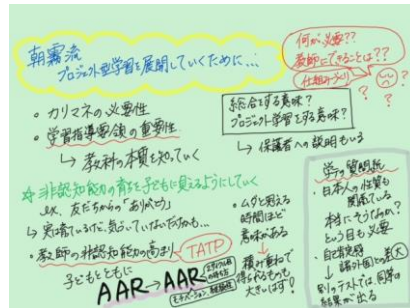 朝霧流
プロジェクト型学習を展開していくために…
何が必要??
教師にできることは??
仕組みづくり
? ? ?
・カリマネの必要性
・学習指導要領の重要性
↳ 教科の本質を知っていく
総合をする意味?
プロジェクト学習をする意味?
↳ 保護者への説明もいる
☆非認知能力の育ちを子どもに見えるようにしていく
ex. 友だちからの「ありがとう」
↳ 実感しているけど、気づいていないだけかも…
・教師の非認知能力の高まり
TATP
子どもとともに
AAR→AAR
モチベーション
・ムダと思える
時間ほど
意味がある
↓
積み重ねで
得られるものも
大きいはず!
学力の質問紙
・日本人の性質も
関係している
本当にそうなのか?
という目も必要
・自己肯定感
↳ 諸外国との差 大
別のテストでは、同等の
結果が出る